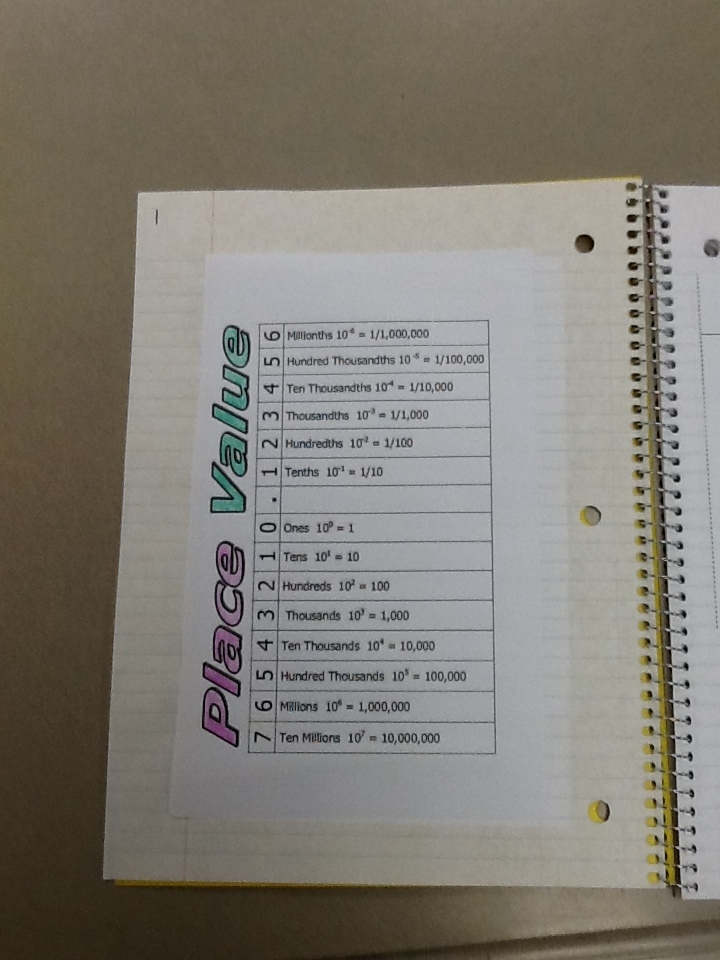 Place Value
6 Millionths 10⁻⁶ = 1/1,000,000
5 Hundred Thousandths 10⁻⁵ = 1/100,000
4 Ten Thousandths 10⁻⁴ = 1/10,000
3 Thousandths 10⁻³ = 1/1,000
2 Hundredths 10⁻² = 1/100
1 Tenths 10⁻¹ = 1/10
.
0 Ones 10⁰ = 1
1 Tens 10¹ = 10
2 Hundreds 10² = 100
3 Thousands 10³ = 1,000
4 Ten Thousands 10⁴ = 10,000
5 Hundred Thousands 10⁵ = 100,000
6 Millions 10⁶ = 1,000,000
7 Ten Millions 10⁷ = 10,000,000